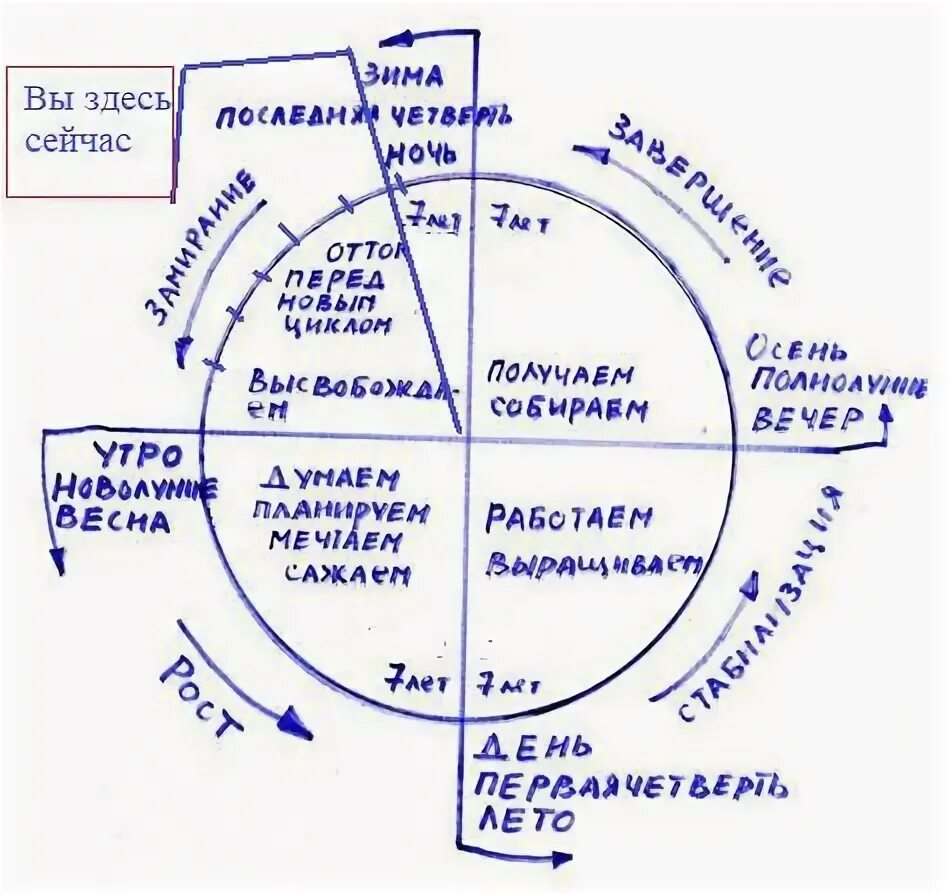 Вы здесь
сейчас
ЗИМА
ПОСЛЕДНЯЯ ЧЕТВЕРТЬ
НОЧЬ
ЗАВЕРШЕНИЕ
ЗАМИРАНИЕ
7 лет
7 лет
ОТТОК
ПЕРЕД
НОВЫМ
ЦИКЛОМ
ВЫСВОБОЖДА-
ЕМ
ПОЛУЧАЕМ
СОБИРАЕМ
ОСЕНЬ
ПОЛНОЛУНИЕ
ВЕЧЕР
УТРО
НОВОЛУНИЕ
ВЕСНА
ДУМАЕМ
ПЛАНИРУЕМ
МЕЧТАЕМ
САЖАЕМ
РАБОТАЕМ
ВЫРАЩИВАЕМ
СТАБИЛИЗАЦИЯ
РОСТ
7 лет
7 лет
ДЕНЬ
ПЕРВАЯ ЧЕТВЕРТЬ
ЛЕТО